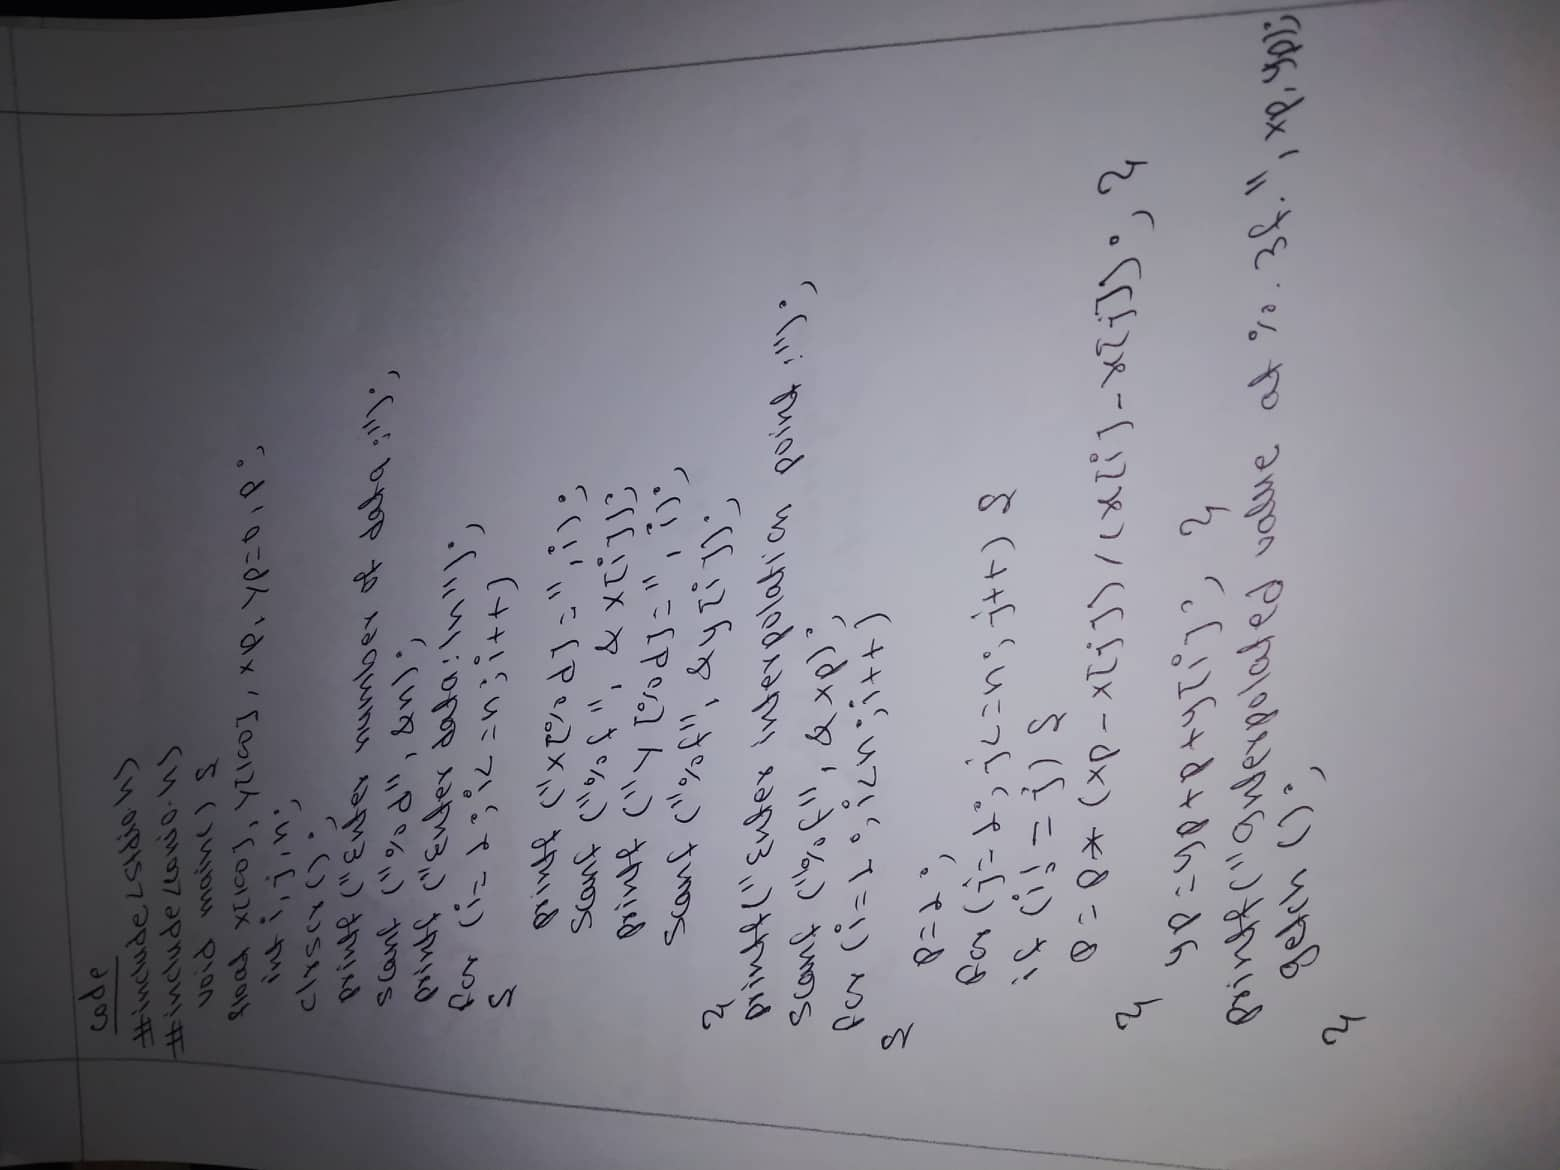 code
#include<stdio.h>
#include<conio.h>
void main() {
float x[100], y[100], xp, yp=0, p;
int i, j, n;
clrscr();
printf("Enter number of data:");
scanf("%d", &n);
printf("Enter data:\n");
for (i=1; i<=n; i++)
{
printf("x[%d]=", i);
scanf("%f", &x[i]);
printf("y[%d]=", i);
scanf("%f", &y[i]);
}
printf("Enter interpolation point:");
scanf("%f", &xp);
for (i=1; i<n; i++)
{
p=1;
for (j=1; j<=n; j++) {
if (i!=j) {
p=p*(xp-x[j])/(x[i]-x[j]); }
}
yp=yp+p*y[i]; }
printf("Interpolated value at %.3f.", xp, yp);
getch();
}